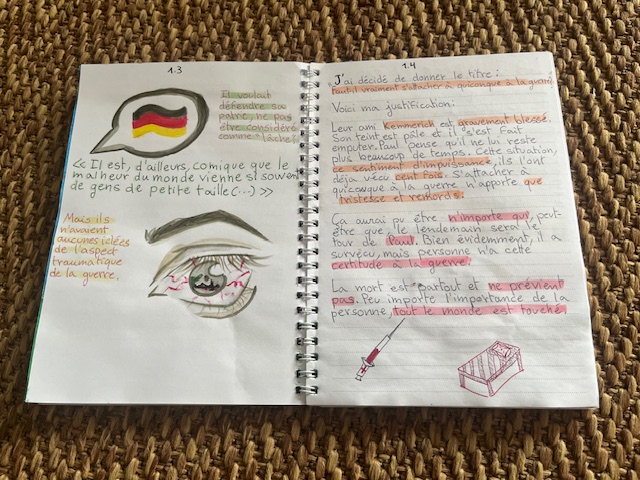 1.3
Il voulait
défendre sa
patrie, ne pas
être considéré
comme "lâche".
<< Il est, d'ailleurs, comique que le
malheur du monde vienne si souvent
de gens de petite taille (...) >>
Mais ils
n'avaient
aucunes idées
de l'aspect
traumatique
de la guerre.
1.4
J'ai décidé de donner le titre:
"Faut-il vraiment s'attacher à quiconque à la guerre
Voici ma justification:
Leur ami Kemmerich est gravement blessé.
Son teint est pâle et il s'est fait
emputer. Paul pense qu'il ne lui reste
plus beaucoup de temps. Cette situation,
ce sentiment d'impuissance, ils l'ont
déja vécu cent fois. S'attacher à
quiconque à la guerre n'apporte que
tristesse et remords.
Ça aurai pu être n'importe qui, peut-
être que, le lendemain sera le
tour de Paul. Bien évidemment, il a
survécu, mais personne n'a cette
certitude à la guerre.
La mort est partout et ne prévient
pas. Peu importe l'importance de la
personne, tout le monde est touché.